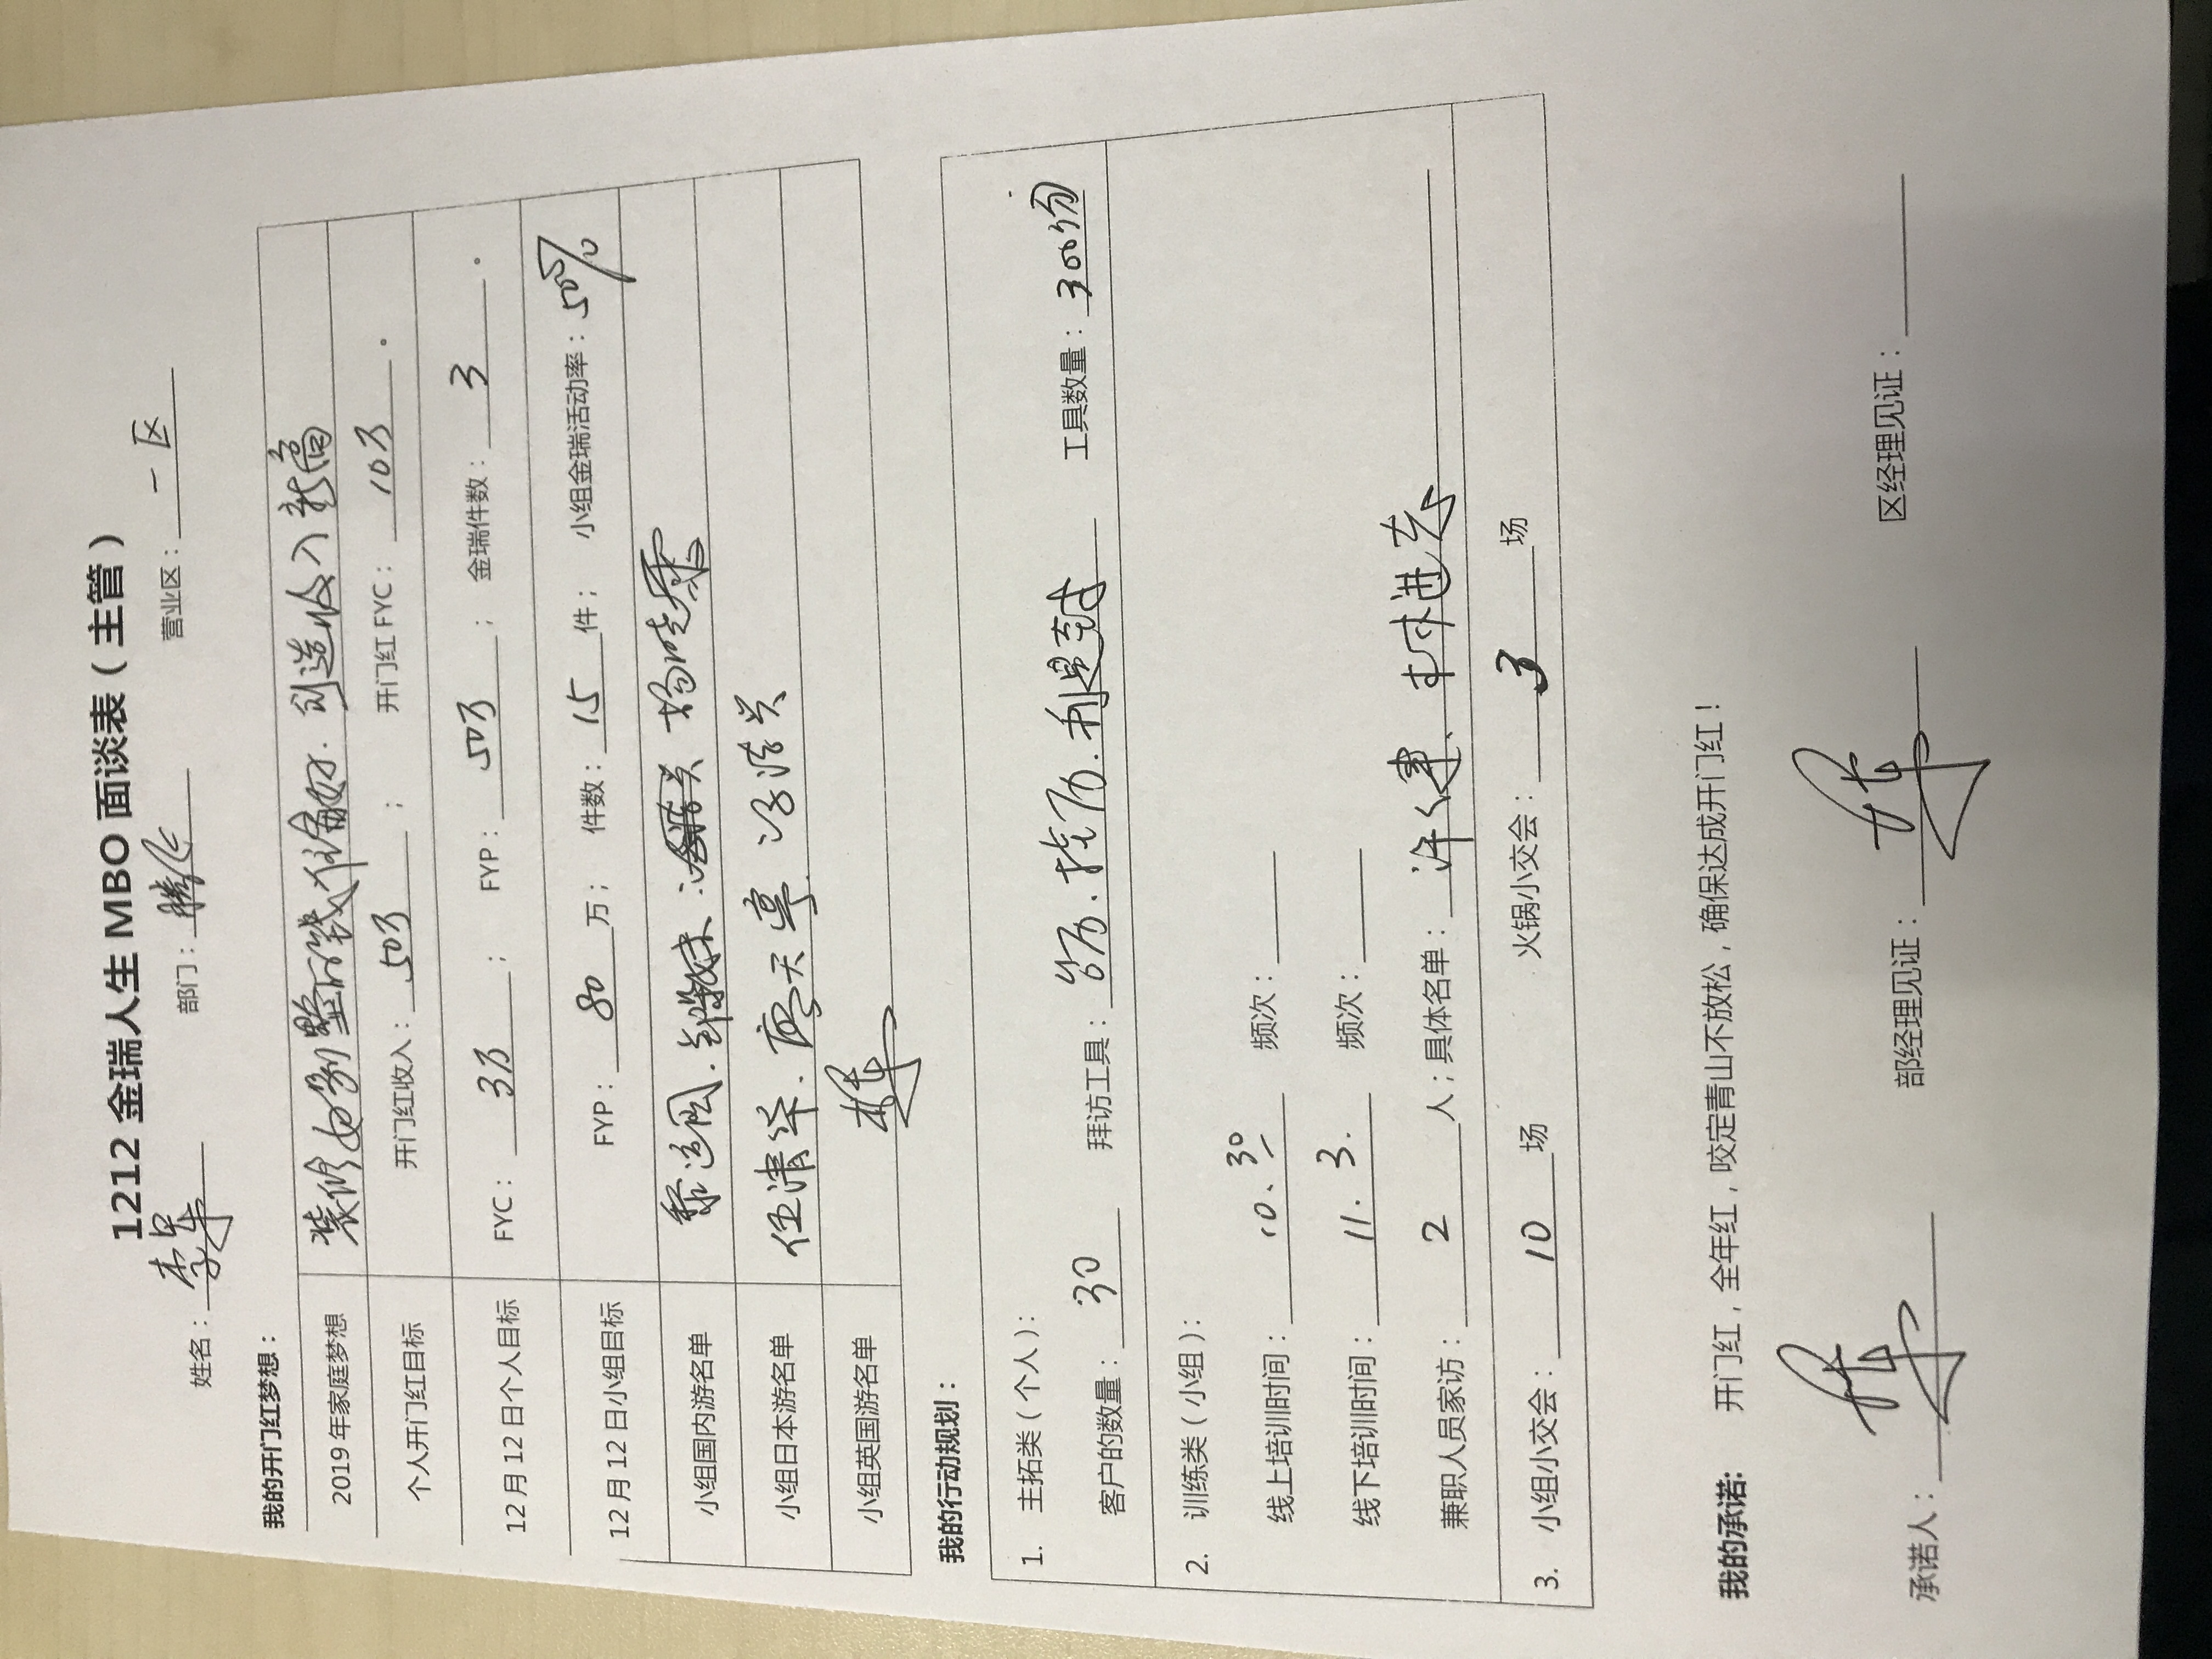 1212 金瑞人生 MBO 面谈表（主管）
姓名： 部门：腾飞 营业区：一区
我的开门红梦想：
2019 年家庭梦想 装修好别墅 创造收入新高
个人开门红目标 开门红收入：50万； 开门红 FYC：10万。
12 月 12 日个人目标 FYC：3万； FYP：50万； 金瑞件数：3。
12 月 12 日小组目标 FYP：80万； 件数：15件； 小组金瑞活动率：50%
小组国内游名单
小组日本游名单
小组英国游名单
我的行动规划：
1. 主拓类（个人）：
客户的数量：30 拜访工具： 工具数量：300份
2. 训练类（小组）：
线上培训时间：10.30 频次：
线下培训时间：11.3. 频次：
兼职人员家访：2人；具体名单：许建、
3. 小组小交会：10场 火锅小交会：3场
我的承诺： 开门红，全年红，咬定青山不放松，确保达成开门红！
承诺人： 部经理见证： 区经理见证：